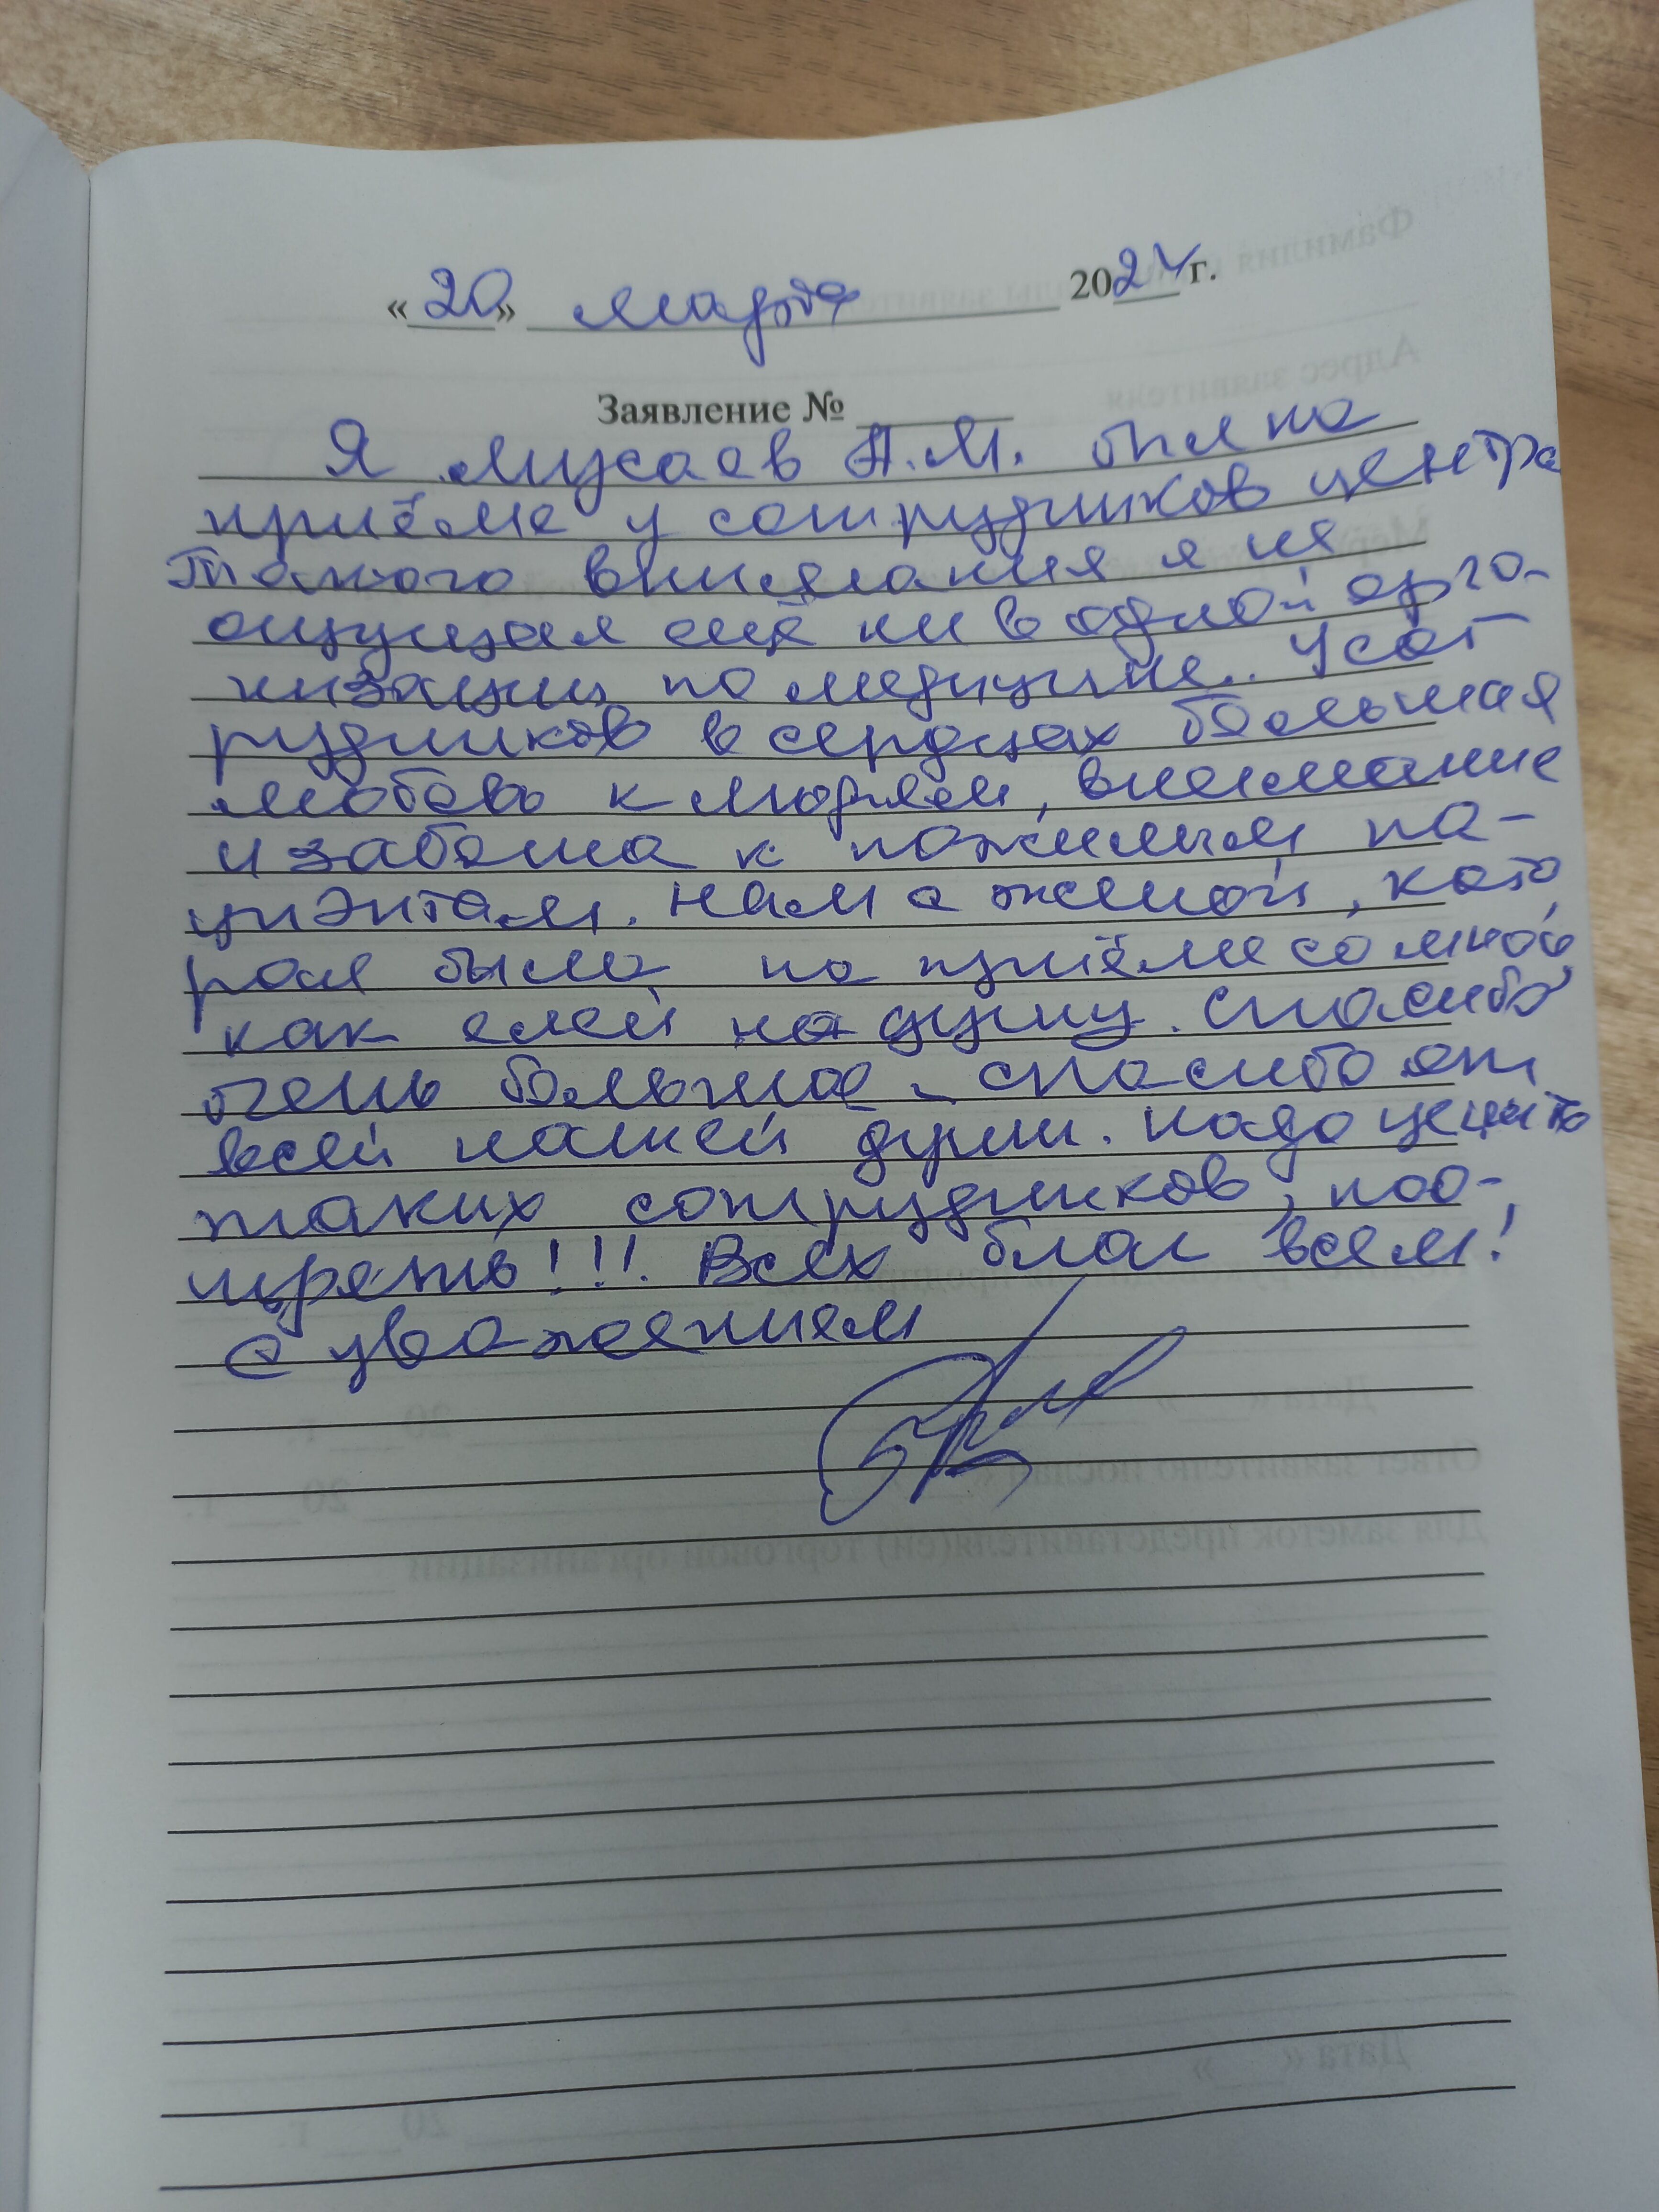 «20» марта 2024 г.
Заявление № ____
Я Мусаев А.М. был на
приёме у сотрудников центра
Такого внимания я не
ощущал ещё ни в одной орга-
низации по медицине.. У сот
рудников в сердцах большая
любовь к людям, внимание
и забота к пожилым па-
циэнтам. Нам с женой, кото
рая была на приёме со мной
как елей на душу. Спасибо
очень большое, спасибо от
всей нашей души. Надо ценить
таких сотрудников, поо-
щрять!!! Всех благ всем!
С уважением